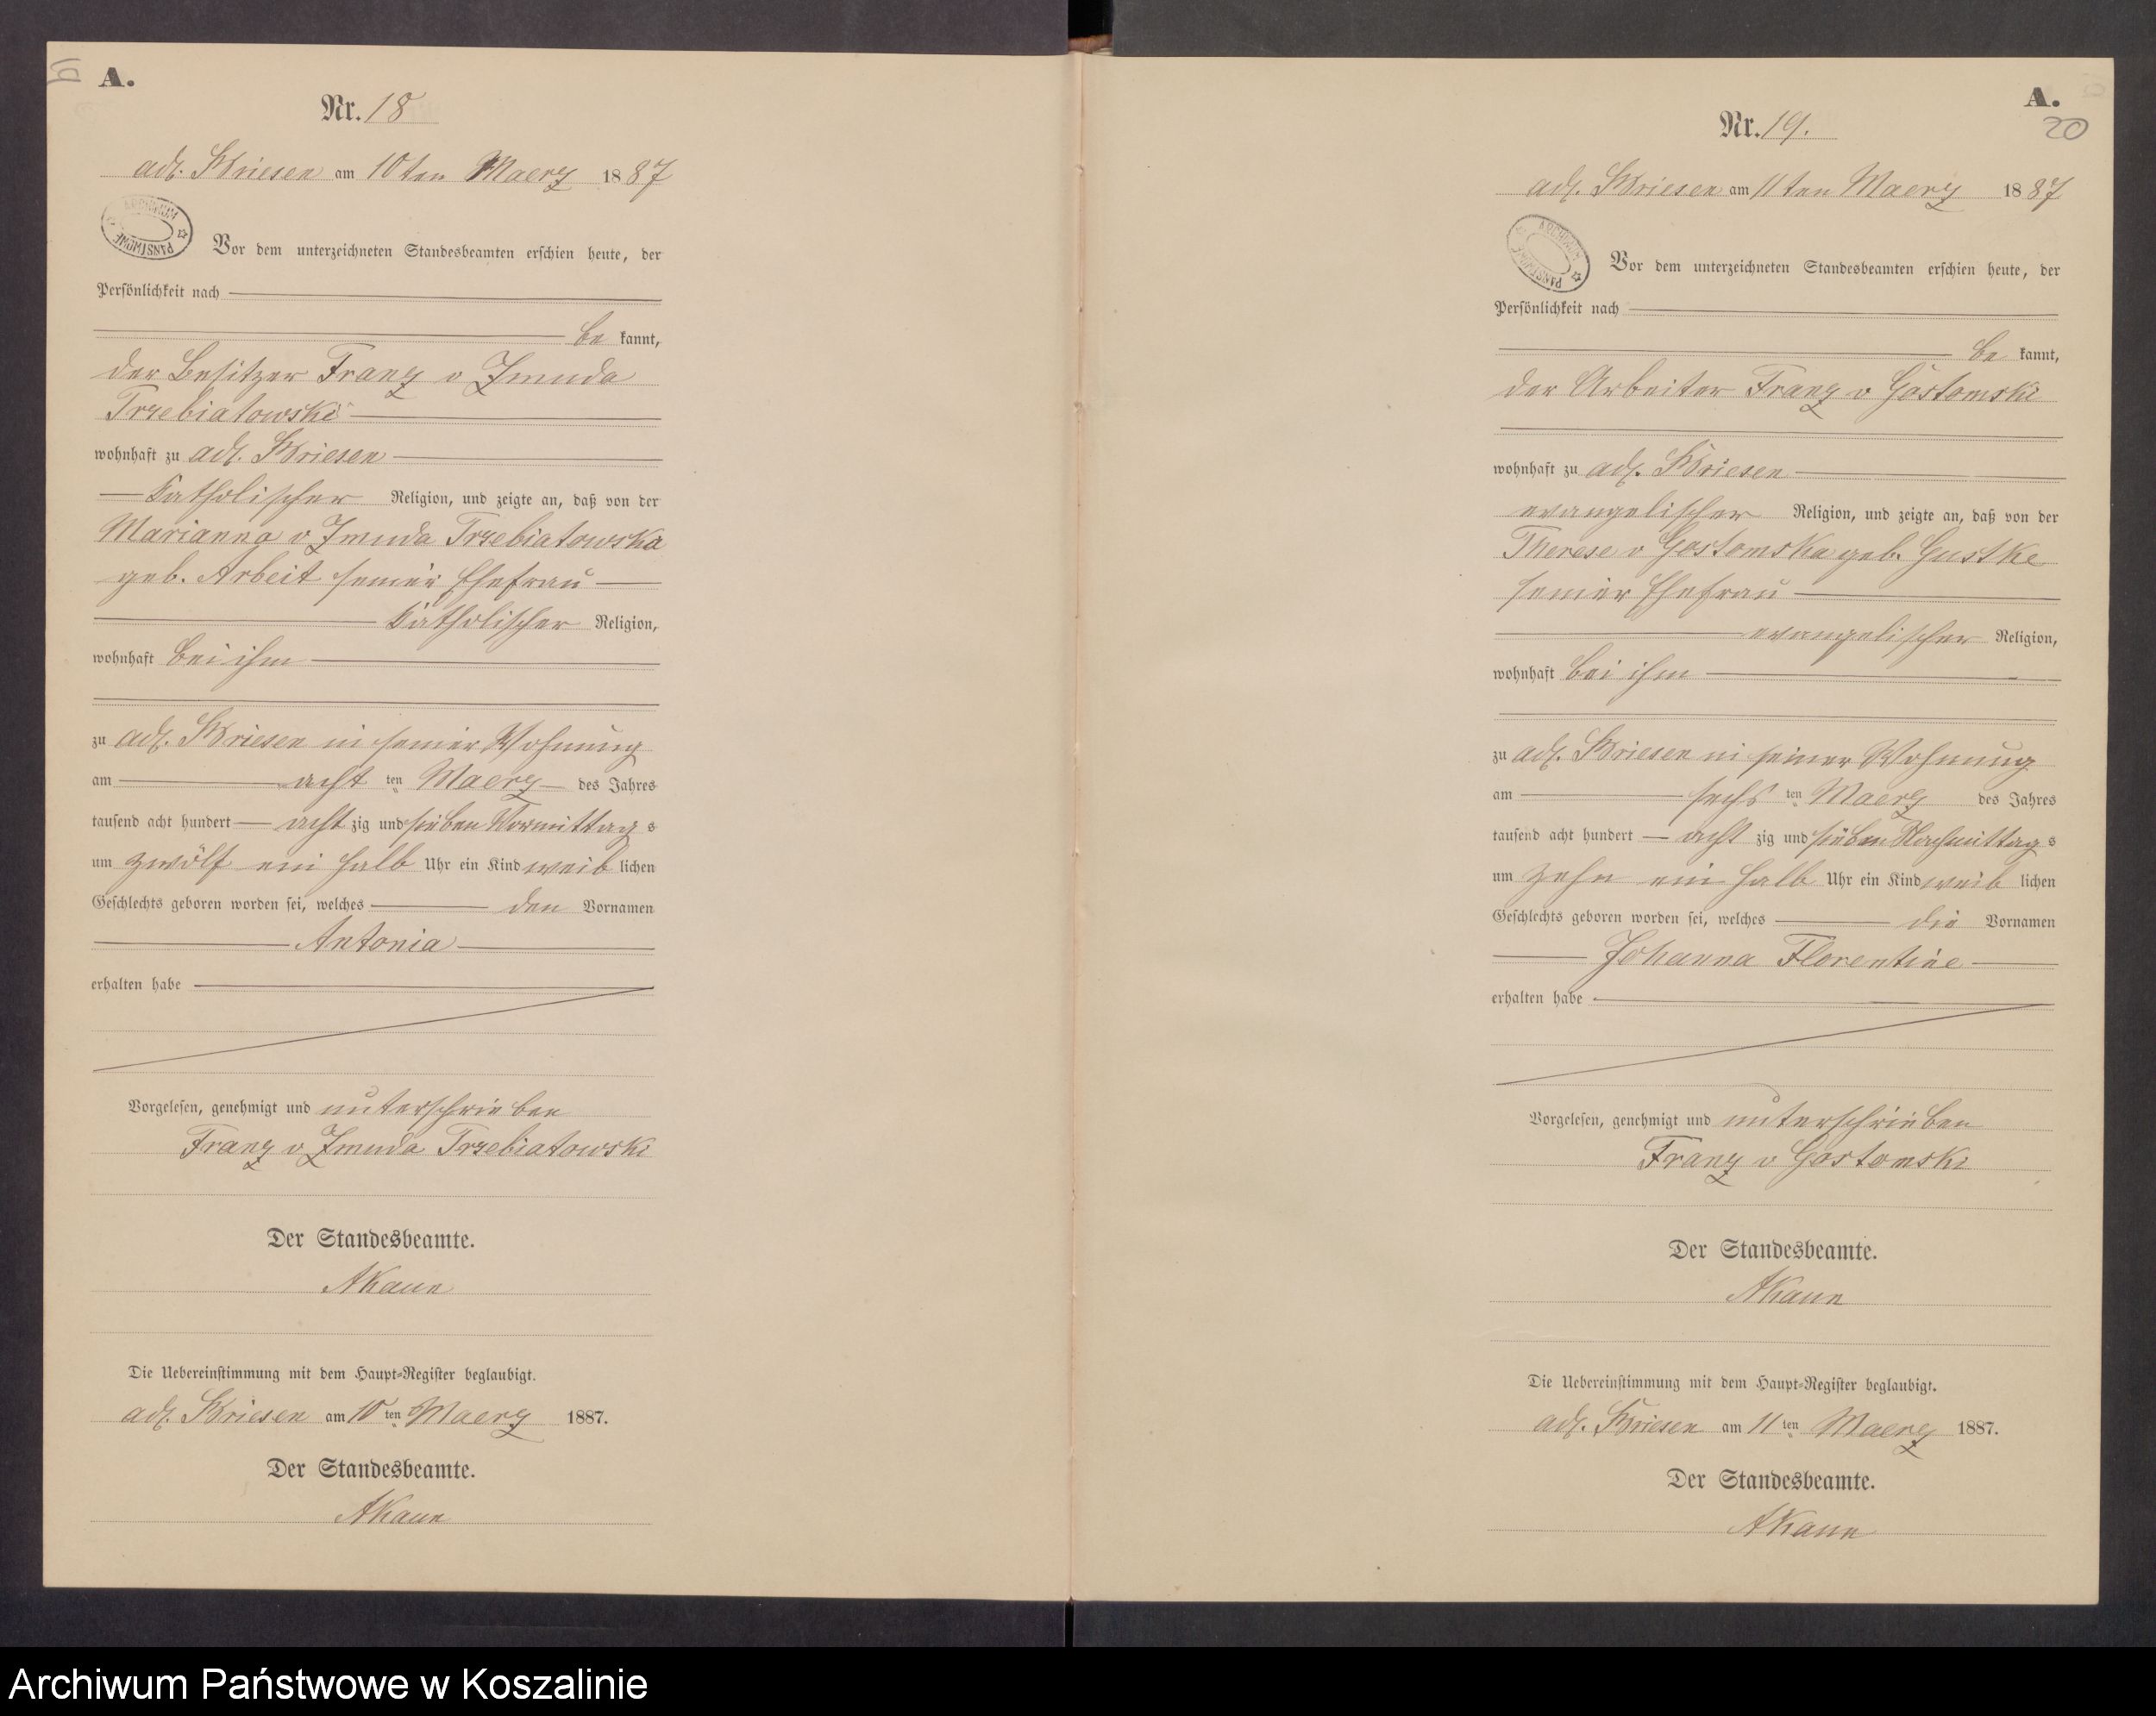 A.
Nr. 18
adl. Briesen am 10ten Maerz 1887
ARCHIWUM PAŃSTWOWE
Vor dem unterzeichneten Standesbeamten erschien heute, der
Persönlichkeit nach
be kannt,
der Besitzer Franz v Zmuda
Trzebiatowski
wohnhaft zu adl. Briesen
Katholischer Religion, und zeigte an, daß von der
Marianna v Zmuda Trzebiatowska
geb. Arbeit seiner Ehefrau
Katholischer Religion,
wohnhaft bei ihm
zu adl. Briesen in seiner Wohnung
am acht ten Maerz des Jahres
tausend acht hundert acht zig und sieben Vormittag s
um zwölf ein halb Uhr ein Kind weib lichen
Geschlechts geboren worden sei, welches den Vornamen
Antonia
erhalten habe
Vorgelesen, genehmigt und unterschrieben
Franz v Zmuda Trzebiatowski
Der Standesbeamte.
AKaun
Die Uebereinstimmung mit dem Haupt-Register beglaubigt.
adl. Briesen am 10 ten Maerz 1887.
Der Standesbeamte.
AKaun
A.
20
Nr. 19.
adl. Briesen am 11ten Maerz 1887
ARCHIWUM PAŃSTWOWE
Vor dem unterzeichneten Standesbeamten erschien heute, der
Persönlichkeit nach
be kannt,
der Arbeiter Franz v Gostomski
wohnhaft zu adl. Briesen
evangelischer Religion, und zeigte an, daß von der
Therese v Gostomska geb. Gustke
seiner Ehefrau
evangelischer Religion,
wohnhaft bei ihm
zu adl. Briesen in seiner Wohnung
am sechs ten Maerz des Jahres
tausend acht hundert acht zig und sieben Nachmittag s
um zehn ein halb Uhr ein Kind weib lichen
Geschlechts geboren worden sei, welches die Vornamen
Johanna Florentine
erhalten habe
Vorgelesen, genehmigt und unterschrieben
Franz v Gostomski
Der Standesbeamte.
AKaun
Die Uebereinstimmung mit dem Haupt-Register beglaubigt.
adl. Briesen am 11 ten Maerz 1887.
Der Standesbeamte.
AKaun
Archiwum Państwowe w Koszalinie